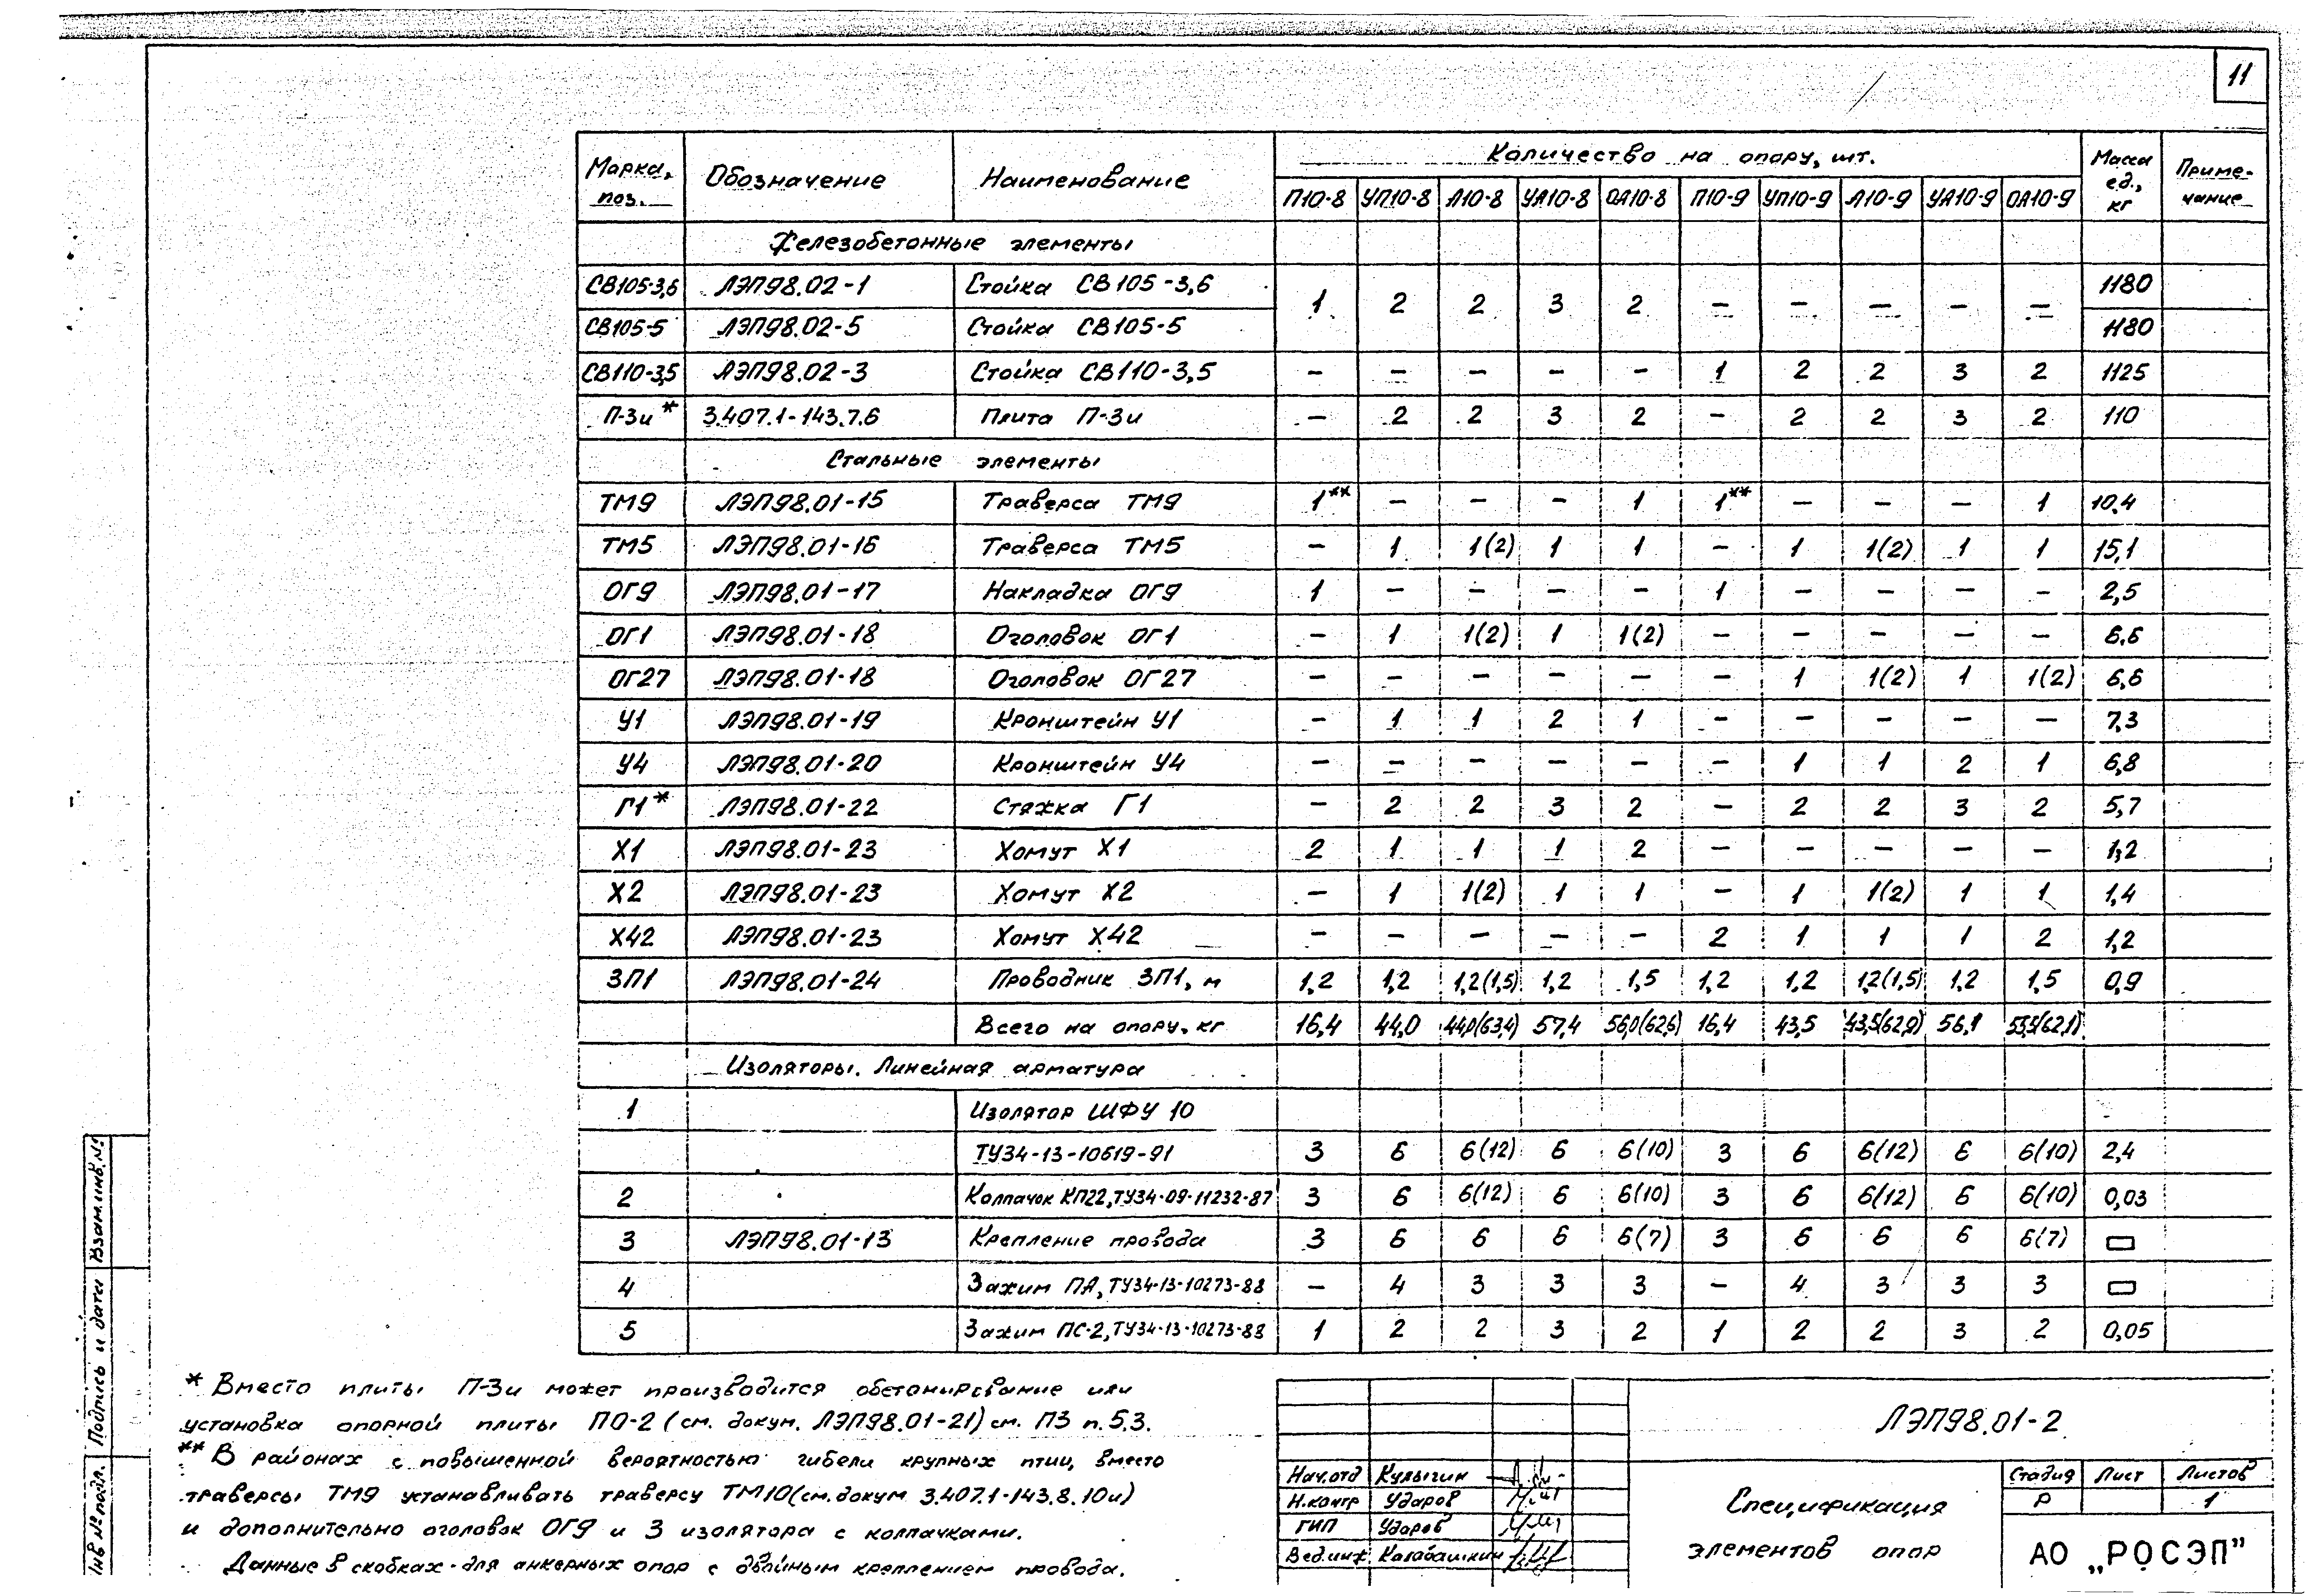 11
Марка, поз. | Обозначение | Наименование | Количество на опору, шт. | Масса ед., кг | Примечание
П10-8 | УП10-8 | А10-8 | УА10-8 | ОА10-8 | П10-9 | УП10-9 | А10-9 | УА10-9 | ОА10-9
Железобетонные элементы
СВ105-3,6 | ЛЭП98.02-1 | Стойка СВ105-3,6 | 1 | 2 | 2 | 3 | 2 | – | – | – | – | – | 1180
СВ105-5 | ЛЭП98.02-5 | Стойка СВ105-5 | 1180
СВ110-3,5 | ЛЭП98.02-3 | Стойка СВ110-3,5 | – | – | – | – | – | 1 | 2 | 2 | 3 | 2 | 1125
П-3и* | 3.407.1-143.7.6 | Плита П-3и | – | 2 | 2 | 3 | 2 | – | 2 | 2 | 3 | 2 | 110
Стальные элементы
ТМ9 | ЛЭП98.01-15 | Траверса ТМ9 | 1** | – | – | – | 1 | 1** | – | – | – | 1 | 10,4
ТМ5 | ЛЭП98.01-16 | Траверса ТМ5 | – | 1 | 1(2) | 1 | 1 | – | 1 | 1(2) | 1 | 1 | 15,1
ОГ9 | ЛЭП98.01-17 | Накладка ОГ9 | 1 | – | – | – | – | 1 | – | – | – | – | 2,5
ОГ1 | ЛЭП98.01-18 | Оголовок ОГ1 | – | 1 | 1(2) | 1 | 1(2) | – | – | – | – | – | 6,6
ОГ27 | ЛЭП98.01-18 | Оголовок ОГ27 | – | – | – | – | – | – | 1 | 1(2) | 1 | 1(2) | 6,6
У1 | ЛЭП98.01-19 | Кронштейн У1 | – | 1 | 1 | 2 | 1 | – | – | – | – | – | 7,3
У4 | ЛЭП98.01-20 | Кронштейн У4 | – | – | – | – | – | – | 1 | 1 | 2 | 1 | 6,8
Г1* | ЛЭП98.01-22 | Стяжка Г1 | – | 2 | 2 | 3 | 2 | – | 2 | 2 | 3 | 2 | 5,7
Х1 | ЛЭП98.01-23 | Хомут Х1 | 2 | 1 | 1 | 1 | 2 | – | – | – | – | – | 1,2
Х2 | ЛЭП98.01-23 | Хомут Х2 | – | 1 | 1(2) | 1 | 1 | – | 1 | 1(2) | 1 | 1 | 1,4
Х42 | ЛЭП98.01-23 | Хомут Х42 | – | – | – | – | – | 2 | 1 | 1 | 1 | 2 | 1,2
ЗП1 | ЛЭП98.01-24 | Проводник ЗП1, м | 1,2 | 1,2 | 1,2(1,5) | 1,2 | 1,5 | 1,2 | 1,2 | 1,2(1,5) | 1,2 | 1,5 | 0,9
Всего на опору, кг | 16,4 | 44,0 | 44,0(63,4) | 57,4 | 56,0(62,6) | 16,4 | 43,5 | 43,5(62,9) | 56,1 | 55,5(62,1)
Изоляторы. Линейная арматура
1 | Изолятор ШФУ 10
ТУ34-13-10619-91 | 3 | 6 | 6(12) | 6 | 6(10) | 3 | 6 | 6(12) | 6 | 6(10) | 2,4
2 | Колпачок КП22, ТУ34-09-11232-87 | 3 | 6 | 6(12) | 6 | 6(10) | 3 | 6 | 6(12) | 6 | 6(10) | 0,03
3 | ЛЭП98.01-13 | Крепление провода | 3 | 6 | 6 | 6 | 6(7) | 3 | 6 | 6 | 6 | 6(7) | ▭
4 | Зажим ПА, ТУ34-13-10273-88 | – | 4 | 3 | 3 | 3 | – | 4 | 3 | 3 | 3 | ▭
5 | Зажим ПС-2, ТУ34-13-10273-88 | 1 | 2 | 2 | 3 | 2 | 1 | 2 | 2 | 3 | 2 | 0,05
* Вместо плиты П-3и может производится обетонирование или
установка опорной плиты ПО-2 (см. докум. ЛЭП98.01-21) см. ПЗ п.5.3.
** В районах с повышенной вероятностью гибели крупных птиц, вместо
траверсы ТМ9 устанавливать траверсу ТМ10 (см. докум 3.407.1-143.8.10и)
и дополнительно оголовок ОГ9 и 3 изолятора с колпачками.
Данные в скобках - для анкерных опор с двойным креплением провода.
ЛЭП98.01-2
Нач.отд | Кулыгин
Н.контр | Ударов
ГИП | Ударов
Вед.инж | Калабашкин
Спецификация
элементов опор
Стадия | Лист | Листов
Р | 1
АО „РОСЭП”
Взам.инв.№
Подпись и дата
Инв № подл.